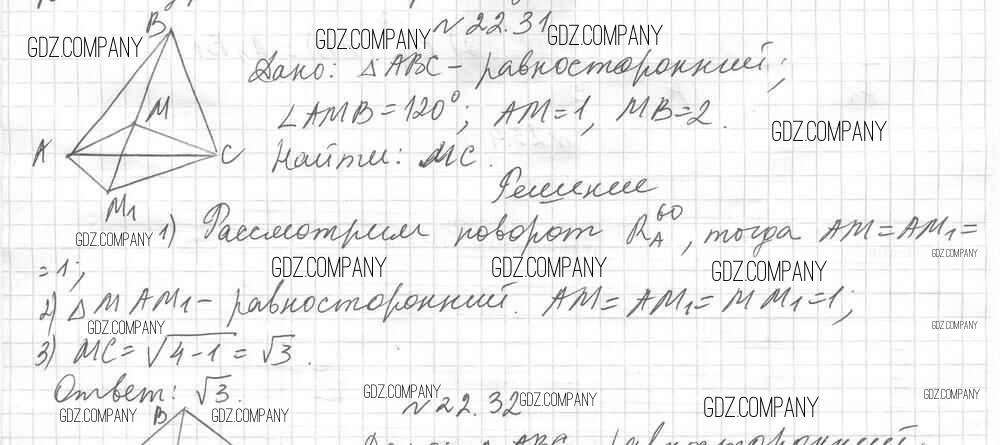 B
№ 22.31
GDZ.COMPANY GDZ.COMPANY GDZ.COMPANY
Дано: △ABC - равносторонний;
M
∠AMB = 120°; AM = 1, MB = 2.
GDZ.COMPANY
A C
Найти: MC.
Решение
M₁
GDZ.COMPANY
1) Рассмотрим поворот R_A^60, тогда AM = AM₁ =
GDZ.COMPANY
= 1;
GDZ.COMPANY GDZ.COMPANY GDZ.COMPANY
2) △MAM₁ - равносторонний. AM = AM₁ = MM₁ = 1;
GDZ.COMPANY GDZ.COMPANY
3) MC = √4-1 = √3.
Ответ: √3.
GDZ.COMPANY GDZ.COMPANY
№ 22.32
GDZ.COMPANY GDZ.COMPANY
GDZ.COMPANY B GDZ.COMPANY
Дано: △ABC - равносторонний,